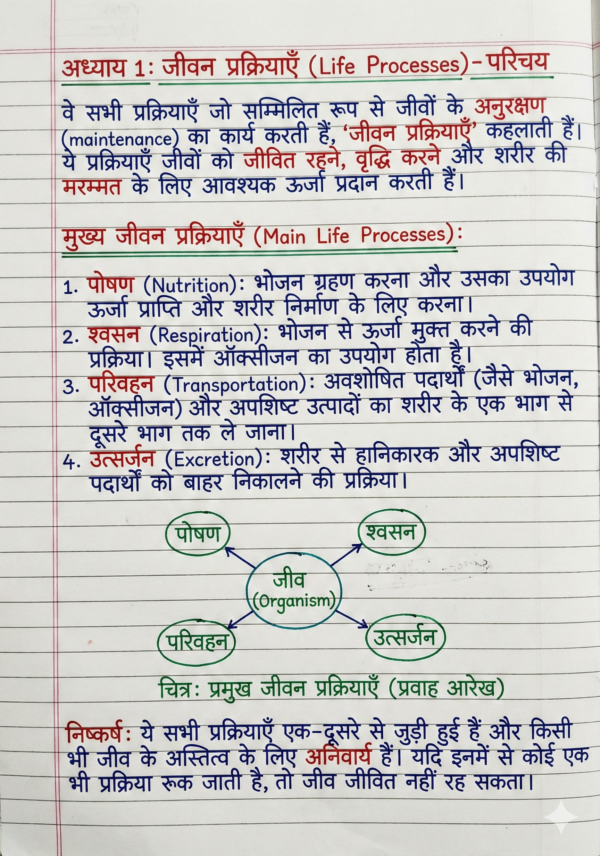 अध्याय 1: जीवन प्रक्रियाएँ (Life Processes) - परिचय
वे सभी प्रक्रियाएँ जो सम्मिलित रूप से जीवों के अनुरक्षण
(maintenance) का कार्य करती हैं, 'जीवन प्रक्रियाएँ' कहलाती हैं।
ये प्रक्रियाएँ जीवों को जीवित रहने, वृद्धि करने और शरीर की
मरम्मत के लिए आवश्यक ऊर्जा प्रदान करती हैं।
मुख्य जीवन प्रक्रियाएँ (Main Life Processes):
1. पोषण (Nutrition): भोजन ग्रहण करना और उसका उपयोग
ऊर्जा प्राप्ति और शरीर निर्माण के लिए करना।
2. श्वसन (Respiration): भोजन से ऊर्जा मुक्त करने की
प्रक्रिया। इसमें ऑक्सीजन का उपयोग होता है।
3. परिवहन (Transportation): अवशोषित पदार्थों (जैसे भोजन,
ऑक्सीजन) और अपशिष्ट उत्पादों का शरीर के एक भाग से
दूसरे भाग तक ले जाना।
4. उत्सर्जन (Excretion): शरीर से हानिकारक और अपशिष्ट
पदार्थों को बाहर निकालने की प्रक्रिया।
पोषण
श्वसन
जीव
(Organism)
परिवहन
उत्सर्जन
चित्र: प्रमुख जीवन प्रक्रियाएँ (प्रवाह आरेख)
निष्कर्ष: ये सभी प्रक्रियाएँ एक-दूसरे से जुड़ी हुई हैं और किसी
भी जीव के अस्तित्व के लिए अनिवार्य हैं। यदि इनमें से कोई एक
भी प्रक्रिया रूक जाती है, तो जीव जीवित नहीं रह सकता।